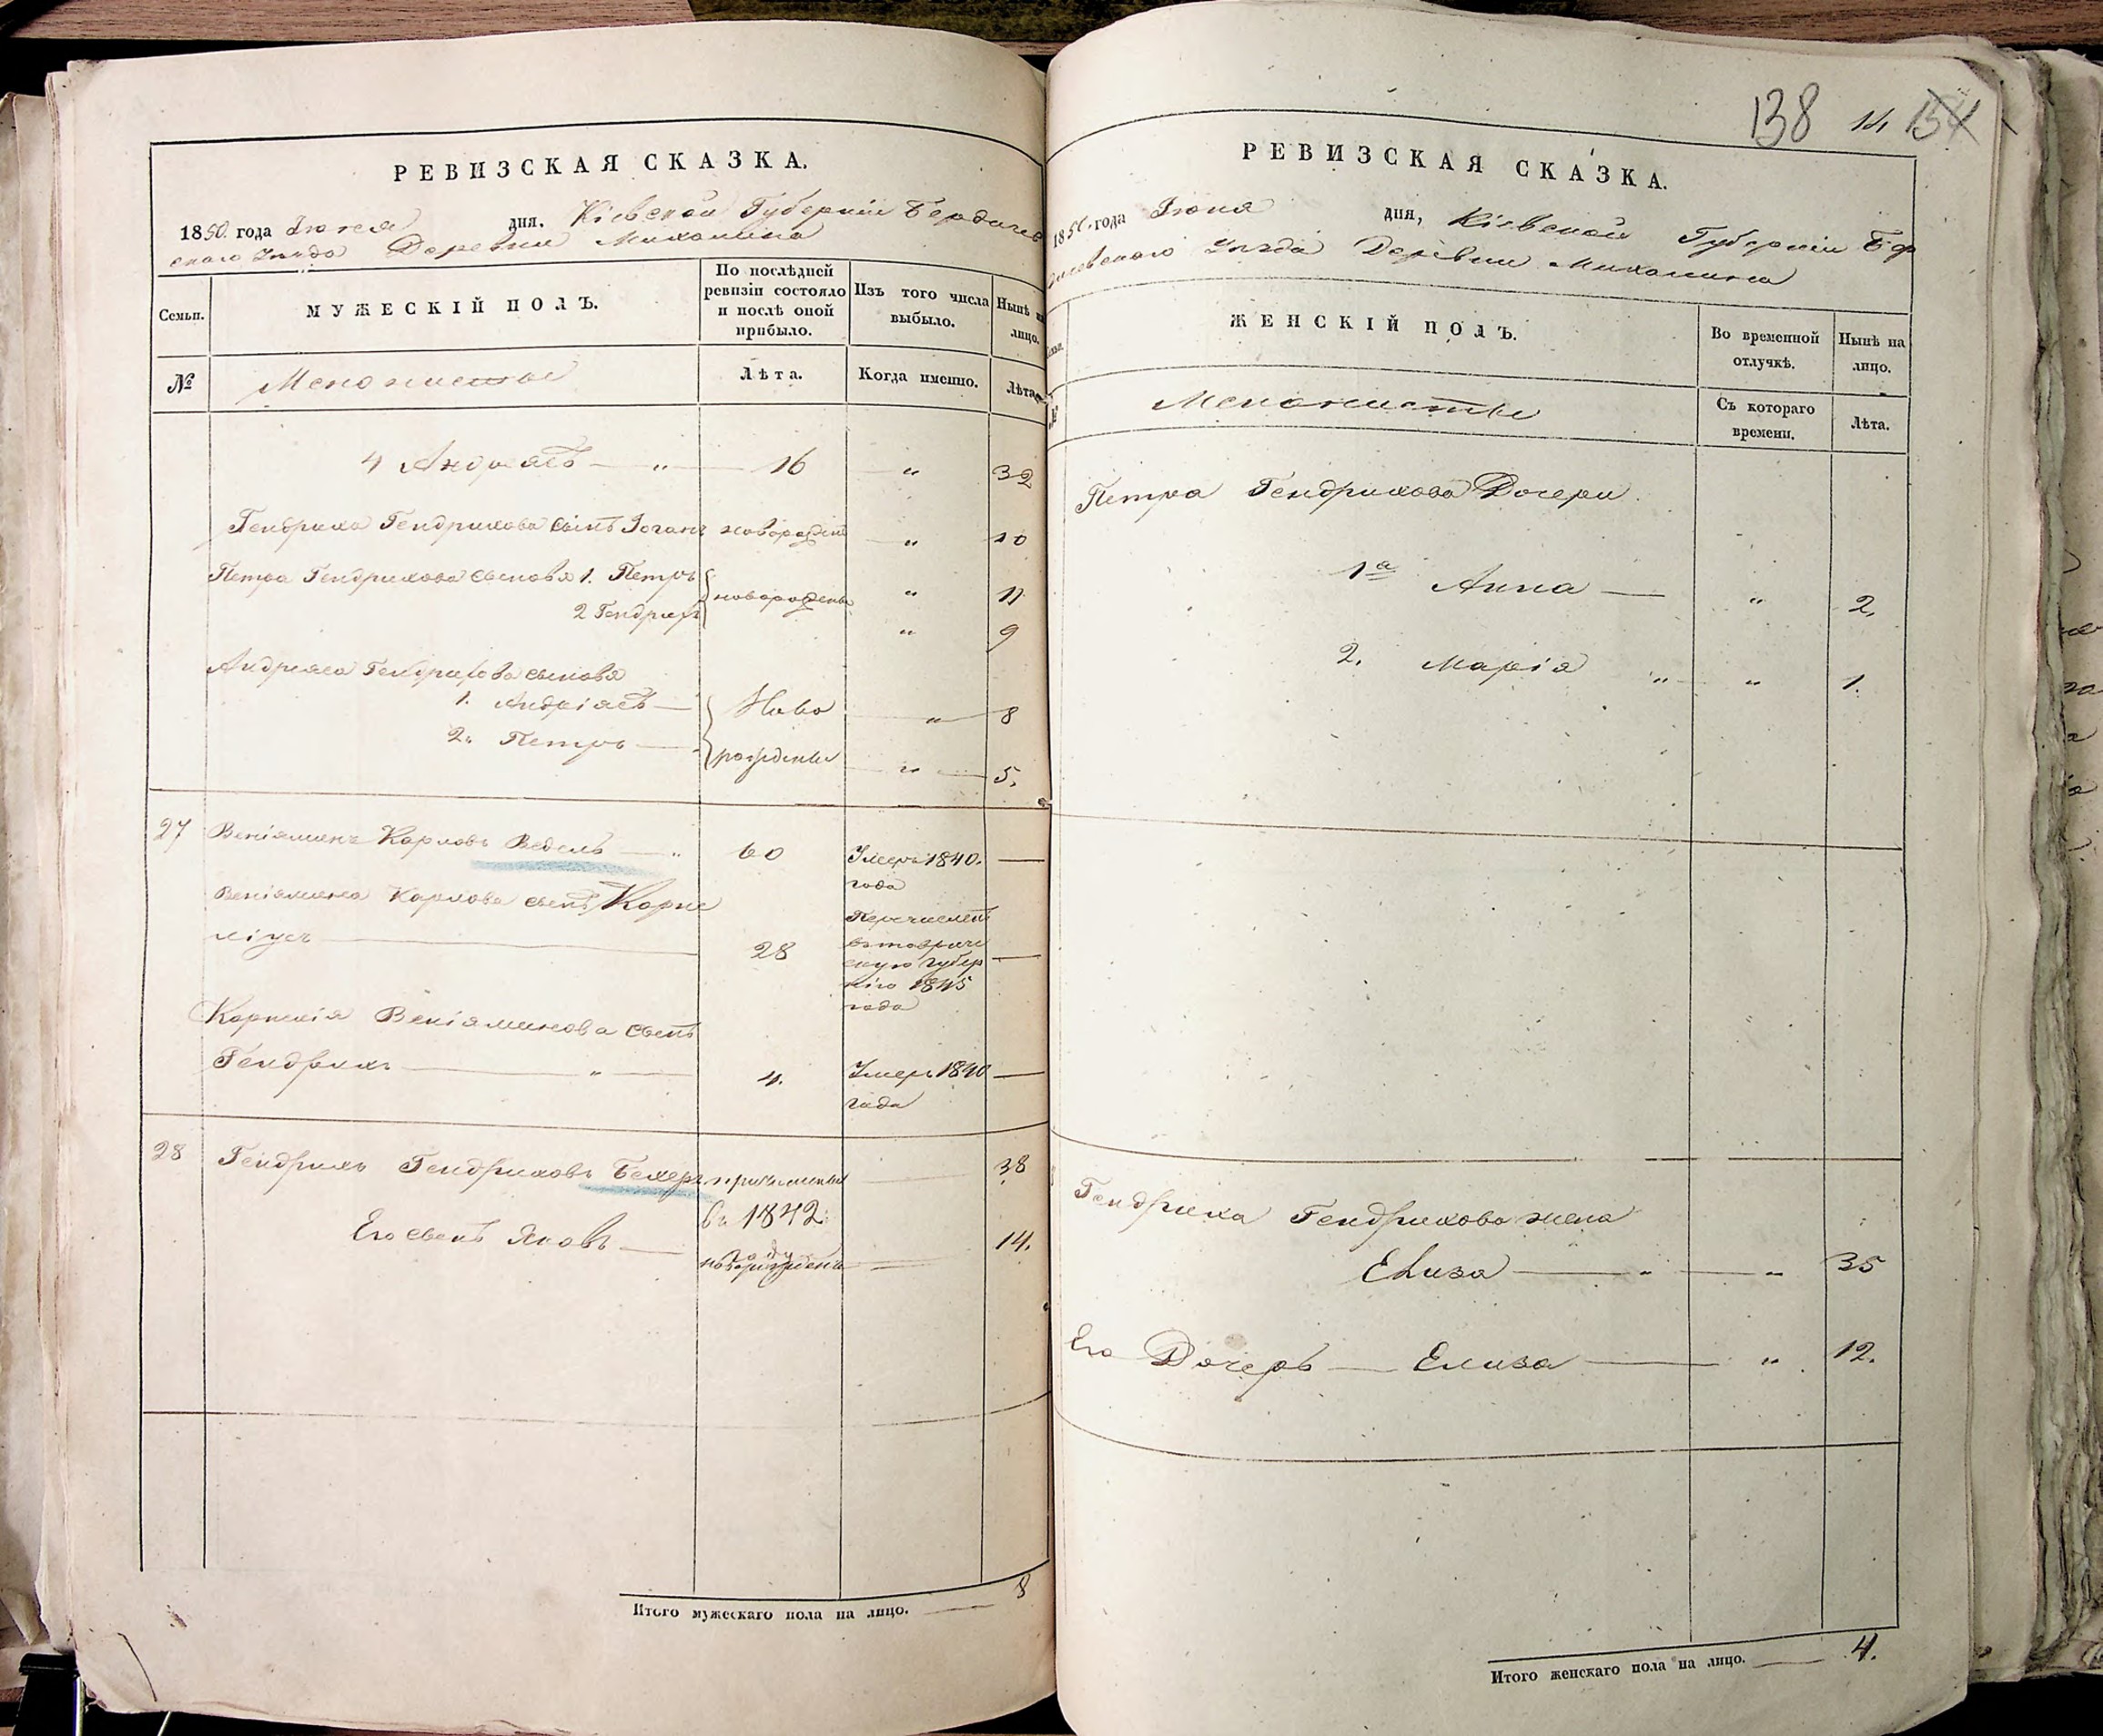 РЕВИЗСКАЯ СКАЗКА.
1850. года Іюня дня, Кіевской Губерніи Бердичев
скаго Уезда Деревни Михалина
Семьи.
МУЖЕСКІЙ ПОЛЪ.
По послѣдней
ревизіи состояло
и послѣ оной
прибыло.
Изъ того числа
выбыло.
Нынѣ на
лицо.
№
Менонисты
Лѣта.
Когда именно.
Лѣта.
4 Андрѣясъ — „ — 16 „ 32
Гендриха Гендрихова сынъ Іоганъ новорожден „ 10
Петра Гендрихова сыновья 1. Петръ новорожденые „ 11
2 Гендрихъ „ 9
Андрѣяса Гендрихова сыновья
1. Андріясъ — Ново „ 8
2. Петръ — рожденые „ 5.
27 Веніяминъ Карловъ Ведель — „ 60 Умеръ 1840. —
года
Веніямина Карлова сынъ Корне
ліусъ — 28 Перечисленъ
въ тавриче
скую губер —
нію 1845
года
Корнелія Веніяминова сынъ
Гендрихъ — „ — 4. Умеръ 1840 —
года
28 Гендрихъ Гендриховъ Бекеръ причисленъ — 38
въ 1842:
году
Его сынъ Яковъ — новорожденъ — 14.
Итого мужескаго пола на лицо. — 8
138 14 154
РЕВИЗСКАЯ СКАЗКА.
1850. года Іюня дня, Кіевской Губерніи Бер
дичевскаго Уѣзда Деревни Михалина
ЖЕНСКІЙ ПОЛЪ.
Во временной
отлучкѣ.
Нынѣ на
лицо.
№
Менонисты
Съ котораго
времени.
Лѣта.
Петра Гендрихова Дочери.
1а Анна — „ 2.
2. Марія „ „ 1.
Гендриха Гендрихова жена
Елиза — „ — „ 35
Его Дочерь — Елиза — „ 12.
Итого женскаго пола на лицо. — 4.